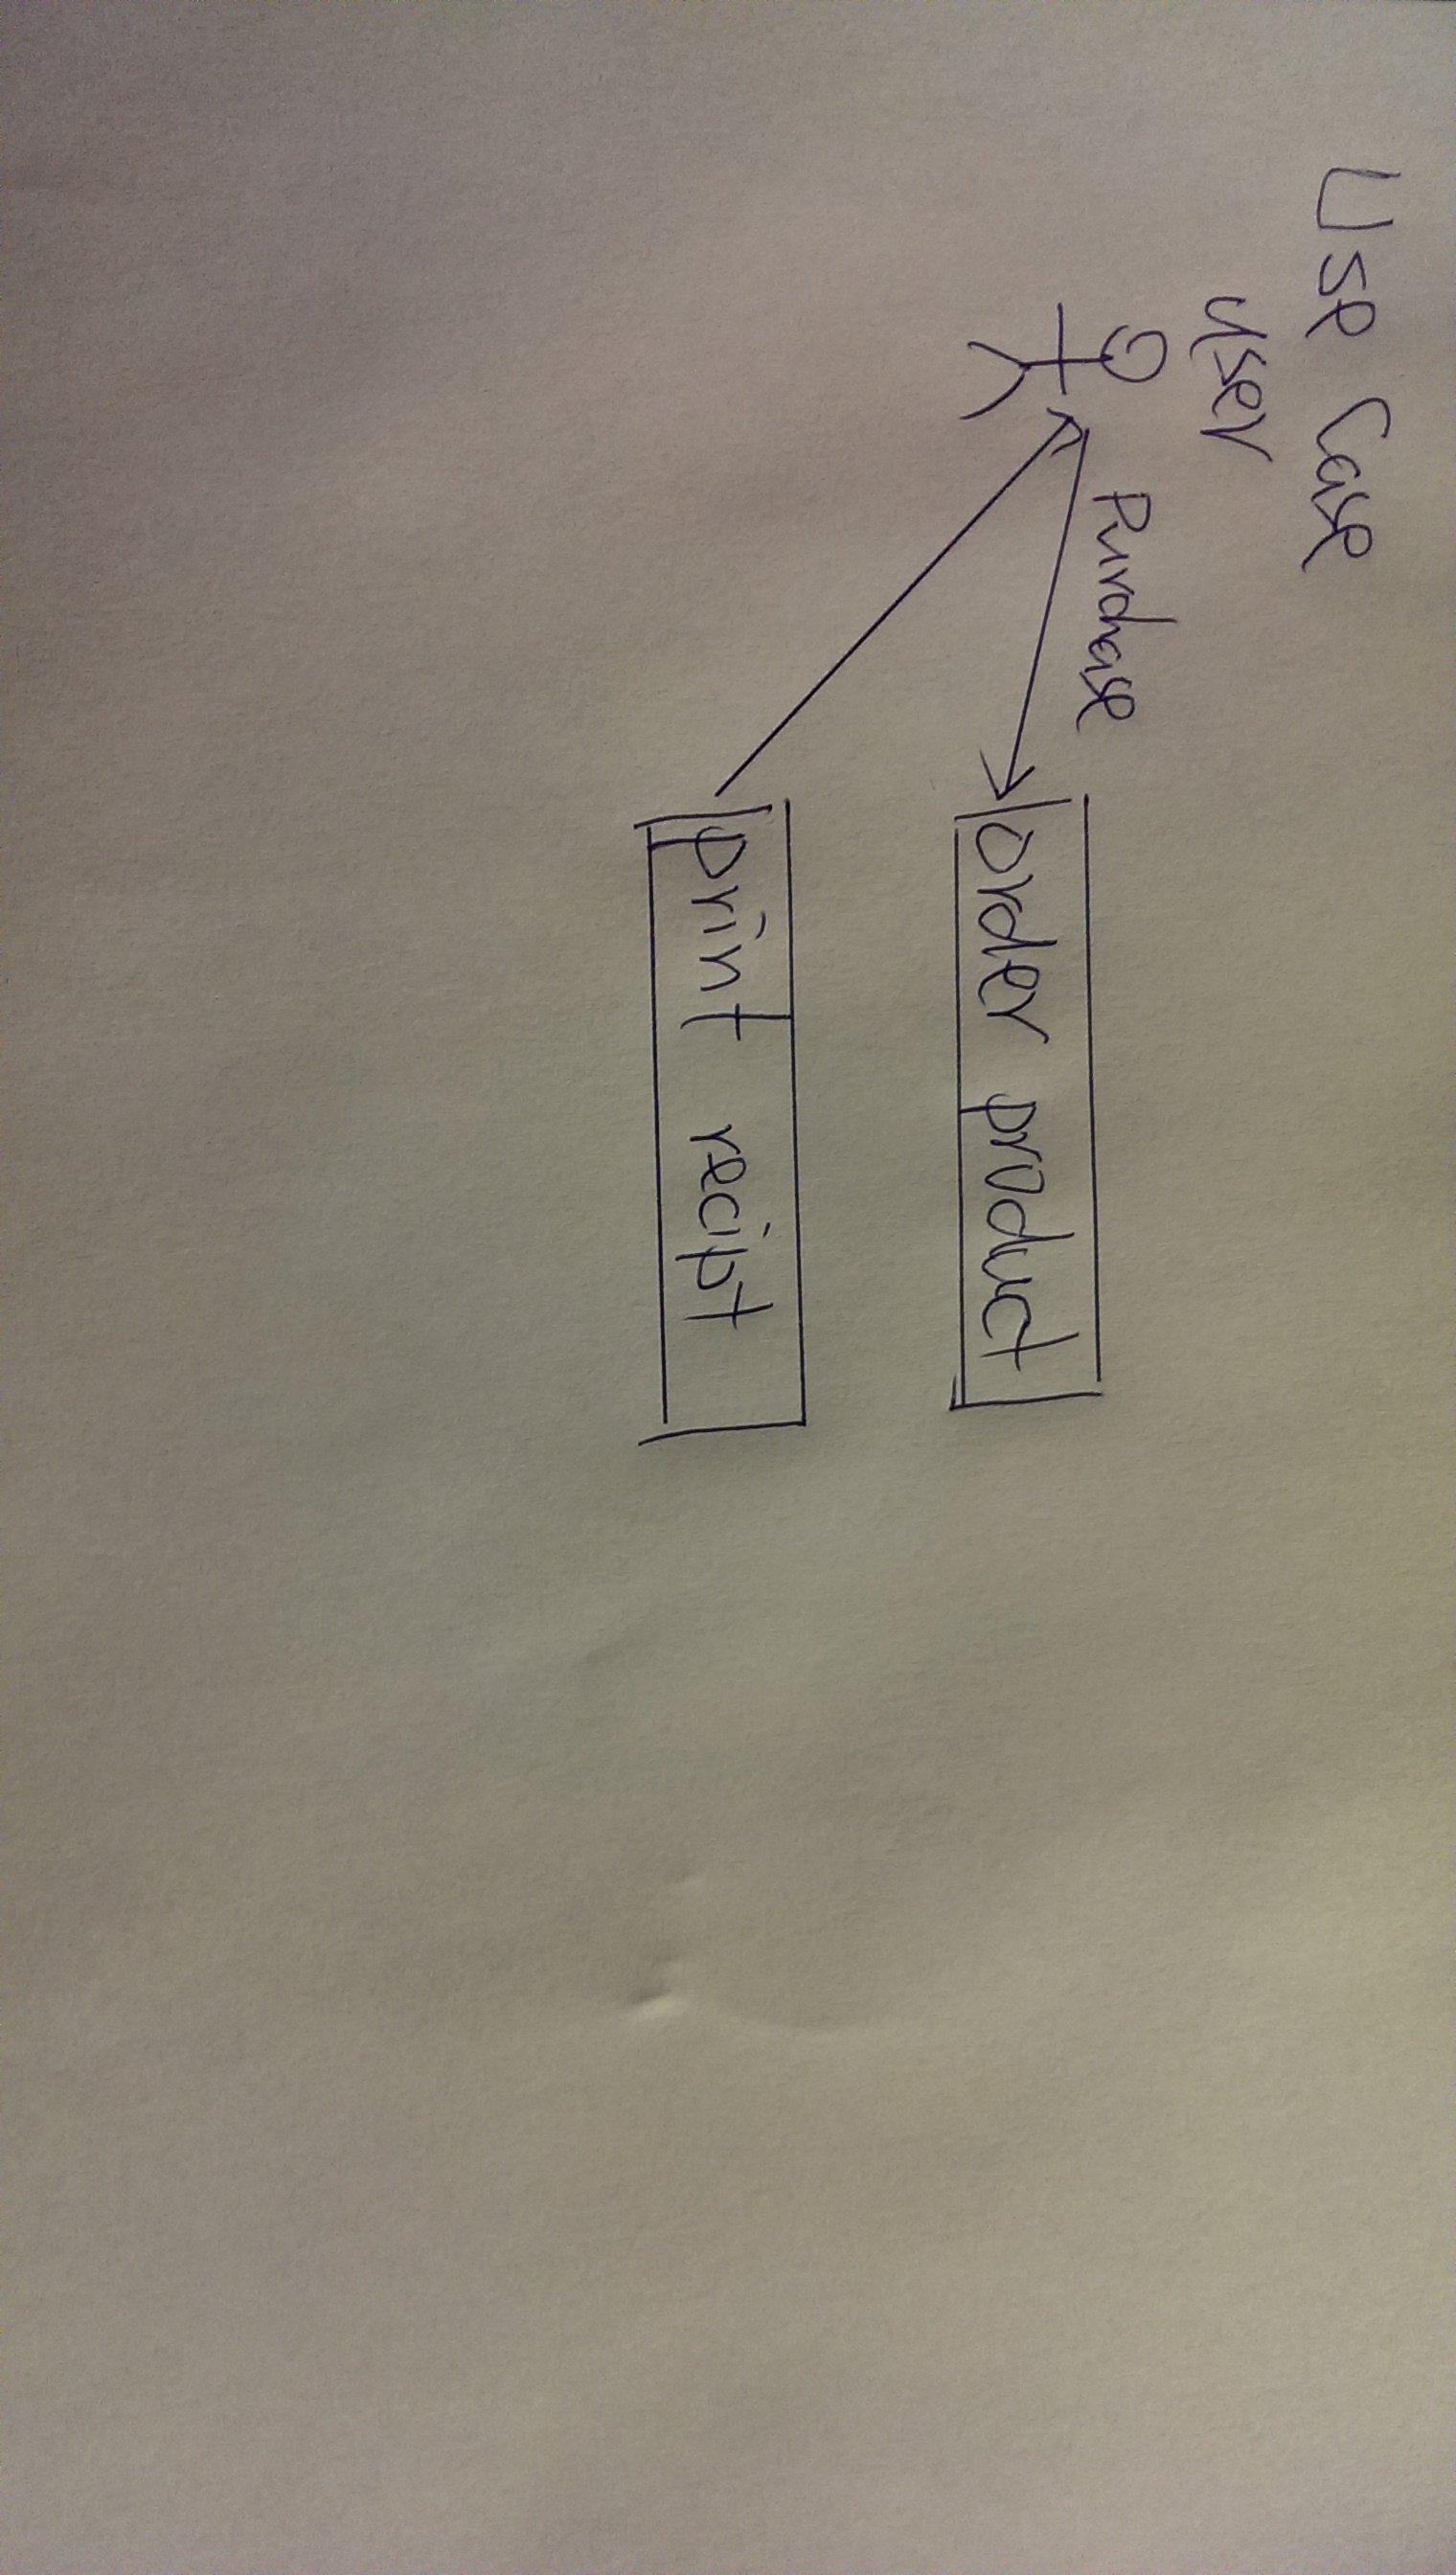 Use Case
User
Purchase
order product
print recipt